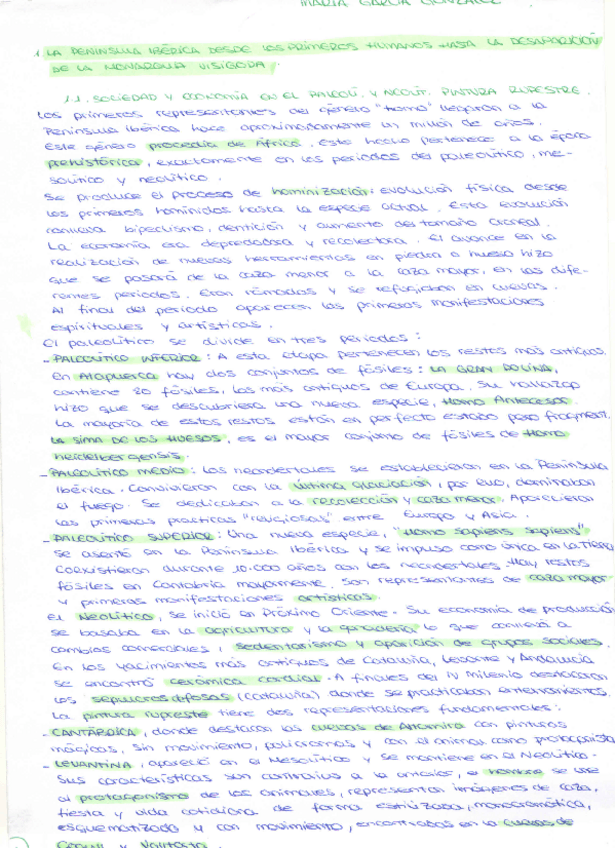 MARÍA GARCÍA GONZÁLEZ
1. LA PENINSULA IBÉRICA DESDE LOS PRIMEROS HUMANOS HASTA LA DESAPARICIÓN
DE LA MONARQUIA VISIGODA.
1.1. SOCIEDAD Y ECONOMÍA EN EL PALEOLÍ. Y NEOLIT. PINTURA RUPESTRE.
Los primeros representantes del género "homo" llegaron a la
Península Ibérica hace aproximadamente un millón de años.
Este género procedía de África. Este hecho pertenece a la época
prehistórica, exactamente en los periodos del paleolítico, me-
solítico y neolítico.
Se produce el proceso de hominización: evolución física desde
los primeros homínidos hasta la especie actual. Esta evolución
conlleva bipedismo, dentición y aumento del tamaño craneal.
La economía era depredadora y recolectora. El avance en la
realización de nuevas herramientas en piedra o hueso hizo
que se pasará de la caza menor a la caza mayor, en los dife-
rentes periodos. Eran nómadas y se refugiaban en cuevas.
Al final del periodo aparecen las primeras manifestaciones
espirituales y artísticas.
El paleolítico se divide en tres periodos:
- PALEOLÍTICO INFERIOR: A esta etapa pertenecen los restos más antiguos.
En Atapuerca hay dos conjuntos de fósiles: LA GRAN DOLINA,
contiene 80 fósiles, los más antiguos de Europa. Su hallazgo
hizo que se descubriera una nueva especie, Homo Antecesor.
La mayoría de estos restos están en perfecto estado pero fragment.
LA SIMA DE LOS HUESOS, es el mayor conjunto de fósiles de Homo
heidelbergensis.
- PALEOLÍTICO MEDIO: Los neandertales se establecieron en la Península
Ibérica. Convivieron con la última glaciación, por ello, dominaban
el fuego. Se dedicaban a la recolección y caza menor. Aparecieron
las primeras practicas "religiosas" entre Europa y Asia.
- PALEOLÍTICO SUPERIOR: Una nueva especie, "Homo sapiens sapiens"
se asentó en la Península Ibérica y se impuso como única en la Tierra
Coexistieron durante 10.000 años con los neandertales. Hay restos
fósiles en Cantabria mayormente. Son representantes de caza mayor
y primeras manifestaciones artísticas.
El Neolítico, se inició en Próximo Oriente. Su economía de producción
se basaba en la agricultura y la ganadería lo que conllevó a
cambios comerciales, sedentarismo y aparición de grupos sociales.
En los yacimientos más antiguos de Cataluña, Levante y Andalucía
se encontró cerámica cardial. A finales del IV Milenio destacaron
los sepulcros de fosas (Cataluña) donde se practicaban enterramientos.
La pintura rupestre tiene dos representaciones fundamentales:
- CANTÁBRICA, donde destacan las cuevas de Altamira con pinturas
mágicas, sin movimiento, policromas y con el animal como protagonista
- LEVANTINA, apareció en el Mesolítico y se mantiene en el Neolítico.
Sus características son contrarias a la anterior, el hombre se une
al protagonismo de los animales, representan imágenes de caza,
fiesta y vida cotidiana de forma estilizada, monocromática,
esquematizada y con movimiento, encontradas en la cuevas de
Cogull y Valltorta.